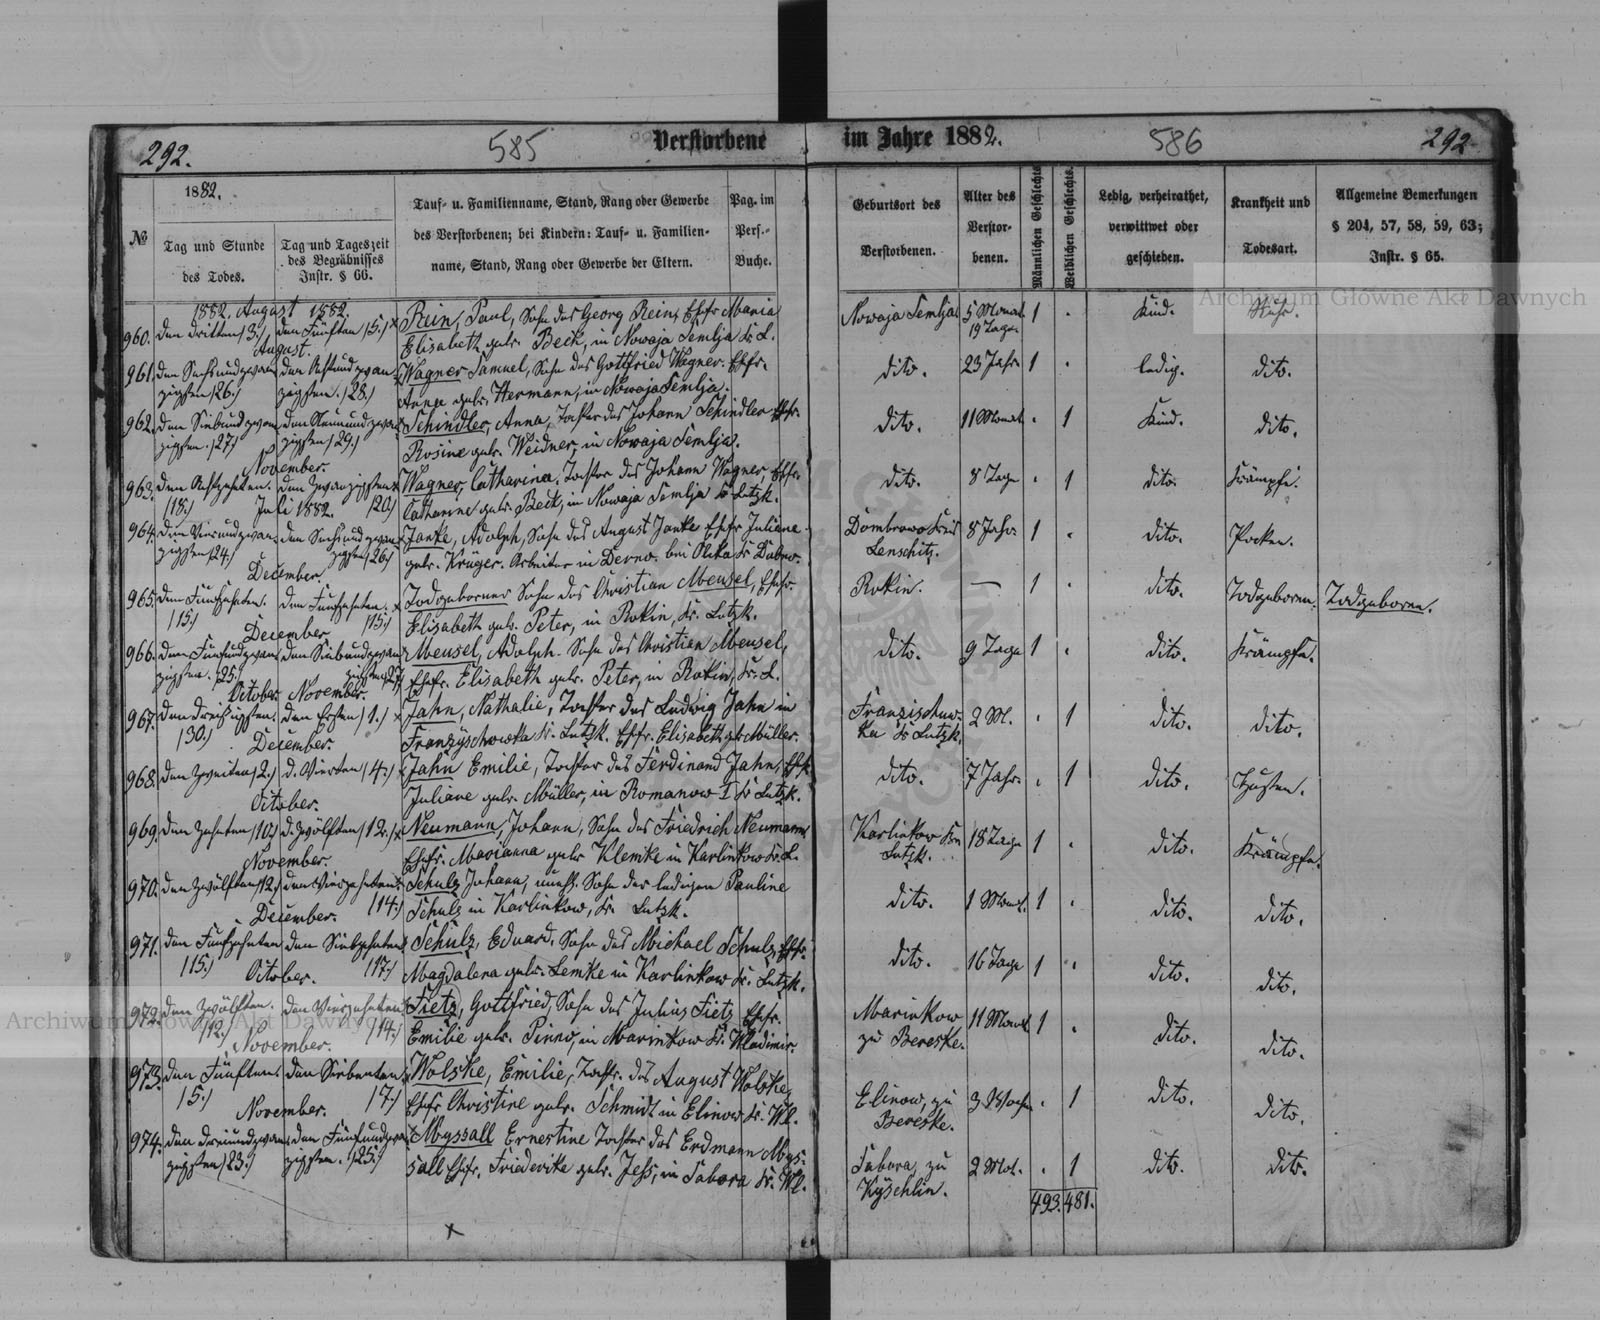 292.
585
Verstorbene
im Jahre 1882.
586
292
№
1882.
Tag und Stunde
des Todes.
Tag und Tageszeit
des Begräbnisses
Instr. § 66.
Tauf- u. Familienname, Stand, Rang oder Gewerbe
des Verstorbenen; bei Kindern: Tauf- u. Familien-
name, Stand, Rang oder Gewerbe der Eltern.
Pag. im
Pers.-
Buche.
Geburtsort des
Verstorbenen.
Alter des
Verstor-
benen.
Männlichen Geschlechts.
Weiblichen Geschlechts.
Ledig, verheirathet,
verwittwet oder
geschieden.
Krankheit und
Todesart.
Allgemeine Bemerkungen
§ 204, 57, 58, 59, 63;
Instr. § 65.
1882. August 1882.
960. den dritten /3./ den Fünften /5./ Rein, Paul, Sohn des Georg Rein, Ehfr Maria Nowaja Semlja 5 Monat 1 Kind. Ruhr.
19 Tage
August.
Elisabeth geb. Beck, in Nowaja Semlja Kr. L.
961. den Sechsundzwan den Achtundzwan Wagner Samuel, Sohn des Gottfried Wagner. Ehfr. dito. 23 Jahr 1 ledig. dito.
zigsten /26./ zigsten. /28./ Anna geb. Hermann, in Nowaja Semlja.
962. den Siebundzwan den Neunundzwan Schindler, Anna, Tochter des Johann Schindler Ehfr. dito. 11 Monat 1 Kind. dito.
zigsten. /27/ zigsten /29./ Rosine geb. Weidner, in Nowaja Semlja.
November.
963. den Achtzehnten. den Zwanzigsten Wagner, Catharina. Tochter des Johann Wagner, Ehfr. dito. 8 Tage 1 dito. Krämpfe.
/18./ /20./ Catharine geb. Beck, in Nowaja Semlja Kr Lutzk.
Juli 1882.
964. den Vierundzwan den Sechsundzwan Janke, Adolph, Sohn des August Janke Ehfr Juliane Dombrowo Kreis 8 Jahr 1 dito. Pocken.
zigsten /24./ zigsten /26/ geb. Krüger. Arbeiter in Derno. bei Olika Kr Dubno. Lenschitz.
December.
965. den Fünfzehnten. den Fünfzehnten. Todgeborner Sohn des Christian Meusel, Ehfr. Rokin. — 1 dito. Todgeboren. Todgeboren.
/15./ /15./ Elisabeth geb. Peter, in Rokin, Kr. Lutzk.
December
966. den Fünfundzwan den Siebundzwan Meusel, Adolph. Sohn des Christian Meusel, dito. 9 Tage 1 dito. Krämpfe.
zigsten. /25. zigsten /27 Ehfr. Elisabeth geb. Peter, in Rokin, Kr. L.
October. November.
967. den dreißigsten. den Ersten /1./ Jahn, Nathalie, Tochter des Ludwig Jahn in Franzischow- 2 M. 1 dito. dito.
/30./ Franzyschowka Kr. Lutzk. Ehfr. Elisabeth gb Müller. ka Kr Lutzk.
December.
968. den Zweiten /2./ d. Vierten /4./ Jahn Emilie, Tochter des Ferdinand Jahn, Ehfr dito. 7 Jahr. 1 dito. Husten.
Juliane geb. Müller, in Romanow I Kr Lutzk.
October.
969. den Zehnten /10./ d. Zwölften /12./ Neumann, Johann, Sohn des Friedrich Neumann Karlinkow Krs 18 Tage 1 dito. Krämpfe.
Ehfr. Marianna geb Klemke in Karlinkow Kr. L. Lutzk.
November.
970. den Zwölften /12./ den Vierzehnten Schulz Johann, unehl. Sohn der ledigen Pauline dito. 1 Monat. 1 dito. dito.
/14./ Schulz in Karlinkow, Kr. Lutzk.
December.
971. den Fünfzehnten den Siebzehnten Schulz, Eduard. Sohn des Michael Schulz, Ehfr. dito. 16 Tage 1 dito. dito.
/15./ /17./ Magdalena geb. Lemke in Karlinkow Kr. Lutzk.
October.
972. den Zwölften. den Vierzehnten Fietz, Gottfried, Sohn des Julius Fietz Ehfr. Marinkow 11 Monat 1 dito. dito.
/12./ /14./ Emilie geb. Pinno, in Marinkow Kr. Wladimir. zu Bereske.
November.
973. den Fünften den Siebenten Wolske, Emilie, Tochtr. des August Wolske, Elinow, zu 3 Woche 1 dito. dito.
/5./ /7./ Ehfr Christine geb. Schmidt in Elinow Kr. Wl. Bereske.
November.
974. den dreiundzwan den Fünfundzwan Myssall Ernestine Tochter des Erdmann Mys- Tabora, zu 2 Mot. 1 dito. dito.
zigsten /23./ zigsten. /25./ sall Ehfr. Friederike geb. Jess, in Tabora Kr. Wl. Kyschlin.
493. 481.
x
Archiwum Główne Akt Dawnych
Archiwum Główne Akt Dawnych